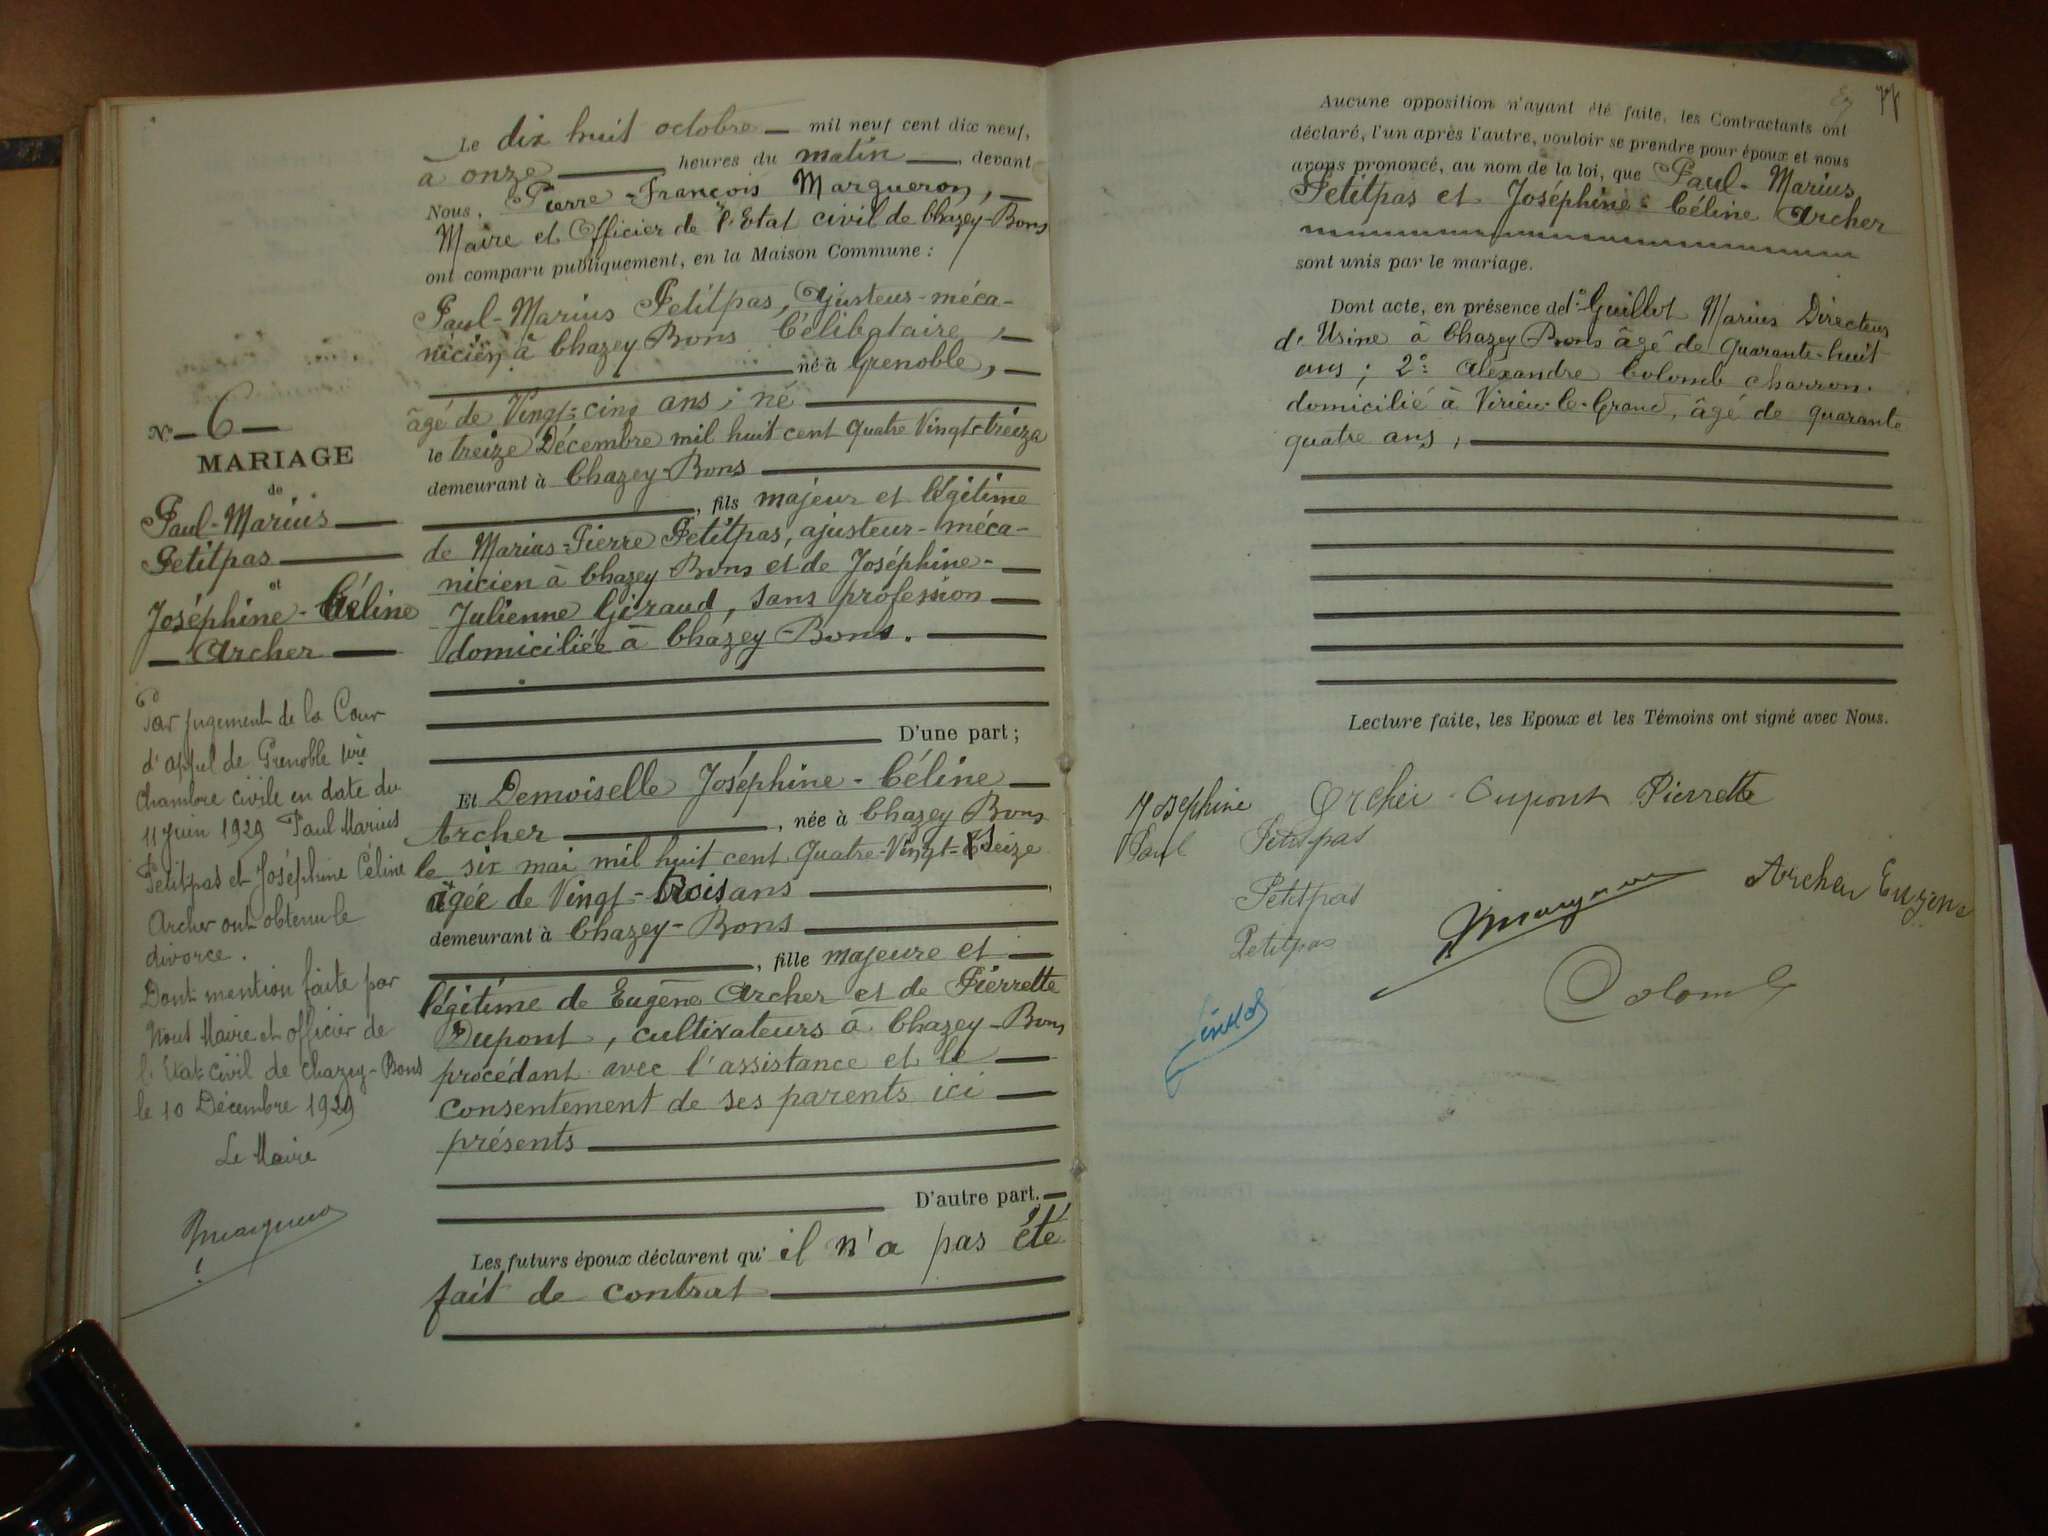 Le dix huit octobre mil neuf cent dix neuf,
à onze heures du matin, devant
Nous, Pierre-François Margueron,
Maire et Officier de l'Etat civil de Chazey-Bons
ont comparu publiquement, en la Maison Commune :
Paul-Marius Petitpas, Ajusteur-méca-
nicien à Chazey Bons Célibataire,
né à Grenoble,
âgé de Vingt-cinq ans ; né
le treize Décembre mil huit cent quatre Vingt-treize
demeurant à Chazey-Bons
, fils majeur et légitime
de Marius-Pierre Petitpas, ajusteur-méca-
nicien à Chazey Bons et de Joséphine-
Julienne Giraud, sans profession
domiciliés à Chazey-Bons.
D'une part ;
Et Demoiselle Joséphine-Céline
Archer, née à Chazey Bons
le six mai mil huit cent quatre-Vingt-seize
âgée de Vingt-trois ans
demeurant à Chazey-Bons
, fille majeure et
légitime de Eugène Archer et de Pierrette
Dupont, cultivateurs à Chazey-Bons
procédant avec l'assistance et le
consentement de ses parents ici
présents
D'autre part.
Les futurs époux déclarent qu' il n'a pas été
fait de contrat
N° 6
MARIAGE
de
Paul-Marius
Petitpas
et
Joséphine-Céline
Archer
Par jugement de la Cour
d'appel de Grenoble 1ère
chambre civile en date du
11 Juin 1929 Paul Marius
Petitpas et Joséphine Céline
Archer ont obtenu le
divorce.
Dont mention faite par
Nous Maire et officier de
l'Etat civil de Chazey-Bons
le 10 Décembre 1929
Le Maire
Margueron
77
Aucune opposition n'ayant été faite, les Contractants ont
déclaré, l'un après l'autre, vouloir se prendre pour époux et nous
avons prononcé, au nom de la loi, que Paul-Marius
Petitpas et Joséphine-Céline Archer
sont unis par le mariage.
Dont acte, en présence de 1° Guillot Marius Directeur
d'Usine à Chazey Bons âgé de quarante-huit
ans ; 2° Alexandre Colomb charron
domicilié à Virieu-le-Grand, âgé de quarante
quatre ans,
Lecture faite, les Epoux et les Témoins ont signé avec Nous.
Josephine Archer Dupont Pierrette
Paul Petitpas
Petitpas Margueron Archer Eugene
Petitpas
Colomb